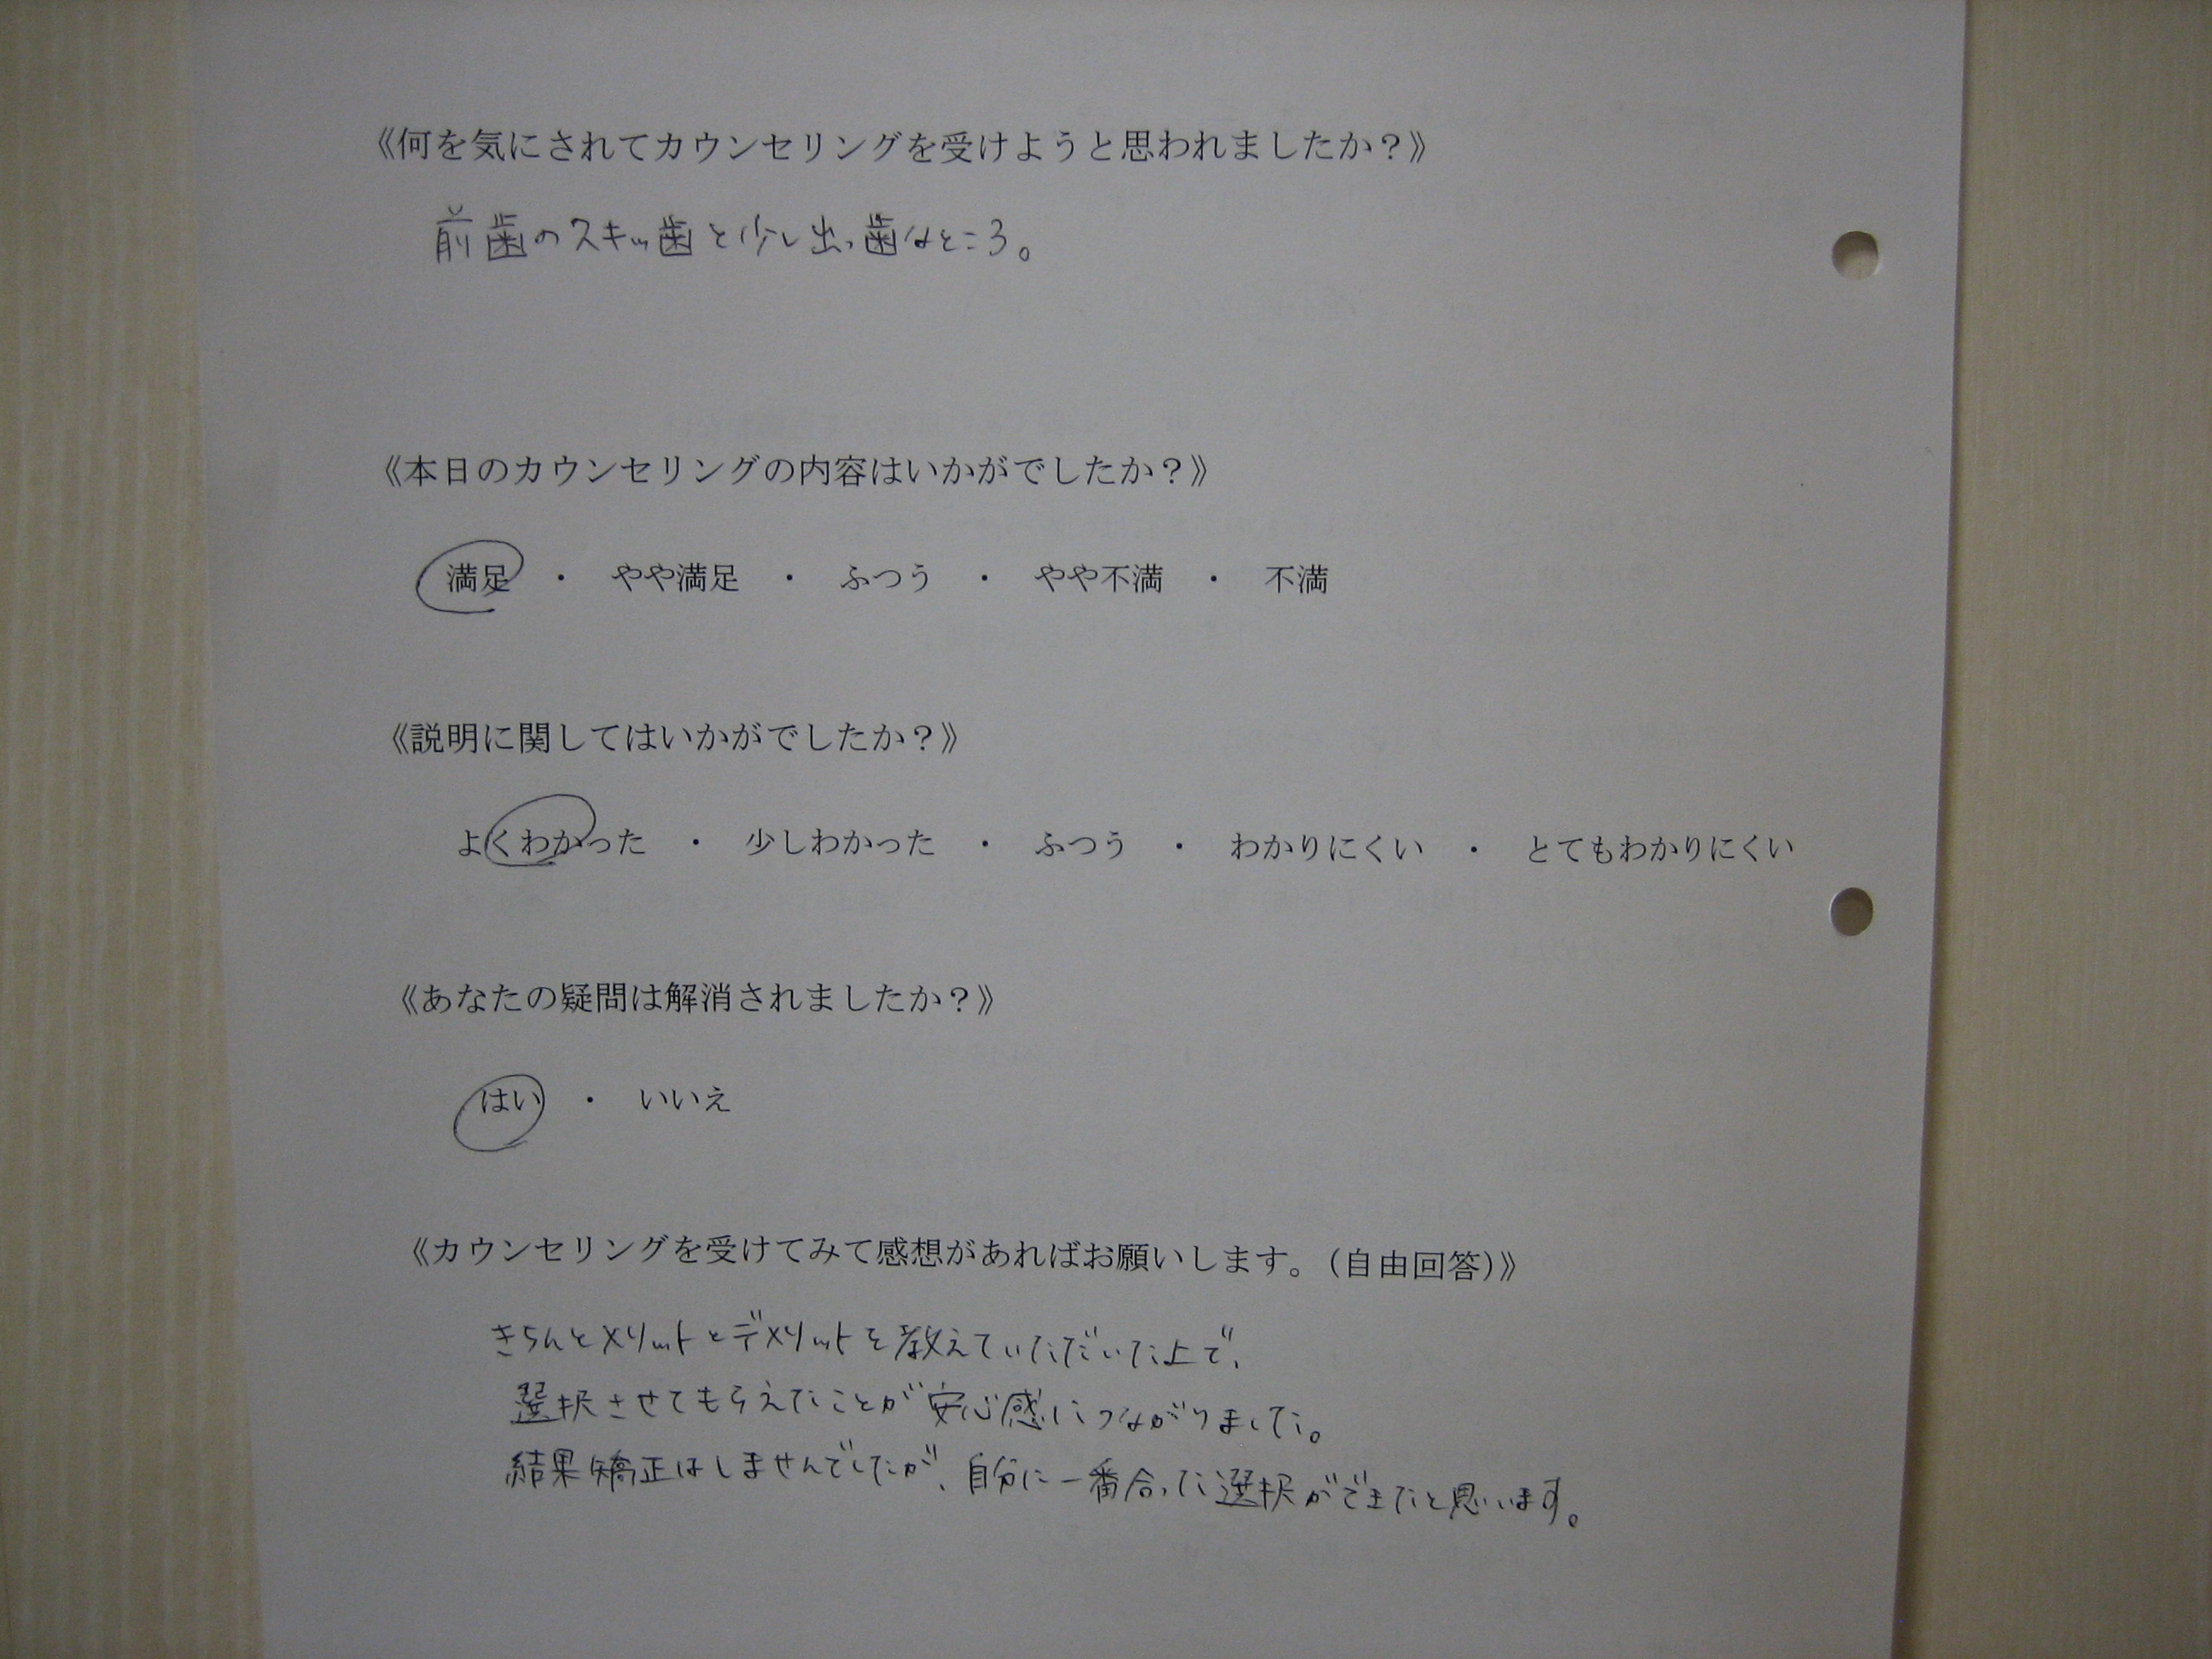 《何を気にされてカウンセリングを受けようと思われましたか？》
前歯のスキッ歯と少し出っ歯なところ。
《本日のカウンセリングの内容はいかがでしたか？》
満足 ・ やや満足 ・ ふつう ・ やや不満 ・ 不満
《説明に関してはいかがでしたか？》
よくわかった ・ 少しわかった ・ ふつう ・ わかりにくい ・ とてもわかりにくい
《あなたの疑問は解消されましたか？》
はい ・ いいえ
《カウンセリングを受けてみて感想があればお願いします。（自由回答）》
きちんとメリットとデメリットを教えていただいた上で、
選択させてもらえたことが安心感につながりました。
結果矯正はしませんでしたが、自分に一番合った選択ができたと思います。